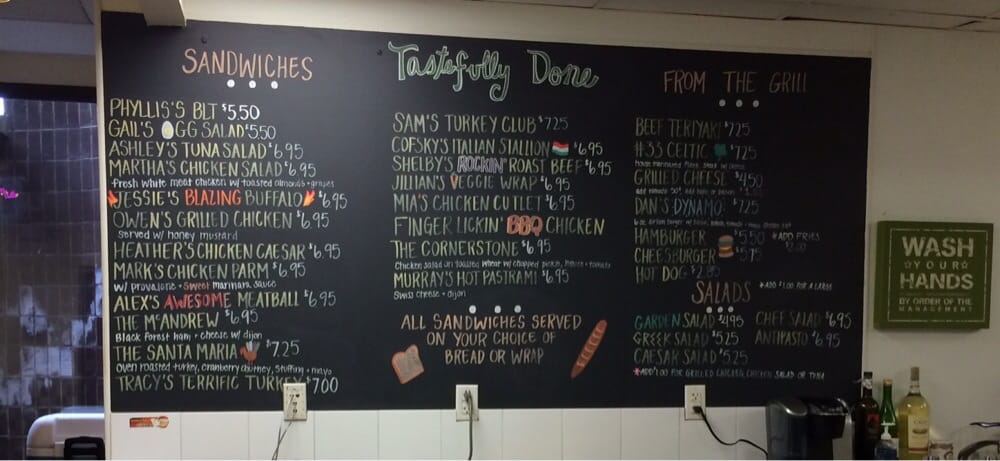 SANDWICHES
PHYLLIS'S BLT $5.50
GAIL'S EGG SALAD $5.50
ASHLEY'S TUNA SALAD $6.95
MARTHA'S CHICKEN SALAD $6.95
fresh white meat chicken w/ toasted almonds + grapes
JESSIE'S BLAZING BUFFALO $6.95
OWEN'S GRILLED CHICKEN $6.95
served w/ honey mustard
HEATHER'S CHICKEN CAESAR $6.95
MARK'S CHICKEN PARM $6.95
w/ provalone + sweet marinara sauce
ALEX'S AWESOME MEATBALL $6.95
THE McANDREW $6.95
Black forest ham + cheese w/ dijon
THE SANTA MARIA $7.25
Oven roasted turkey, cranberry chutney, stuffing + mayo
TRACY'S TERRIFIC TURKEY $7.00
Tastefully Done
SAM'S TURKEY CLUB $7.25
COFSKY'S ITALIAN STALLION $6.95
SHELBY'S ROCKIN' ROAST BEEF $6.95
JILLIAN'S VEGGIE WRAP $6.95
MIA'S CHICKEN CUTLET $6.95
FINGER LICKIN' BBQ CHICKEN
THE CORNERSTONE $6.95
Chicken salad on toasted wheat w/ chopped pickle, lettuce + tomato
MURRAY'S HOT PASTRAMI $6.95
Swiss cheese + dijon
ALL SANDWICHES SERVED
ON YOUR CHOICE OF
BREAD OR WRAP
FROM THE GRILL
BEEF TERIYAKI $7.25
#33 CELTIC $7.25
house marinated steak
GRILLED CHEESE $4.50
add tomato 50¢, add ham or bacon
DAN'S DYNAMO $7.25
HAMBURGER $5.50 *ADD FRIES
$2.00
CHEESBURGER $5.75
HOT DOG $2.85
SALADS *ADD $1.00 FOR A LARGE
GARDEN SALAD $4.95 CHEF SALAD $6.95
GREEK SALAD $5.25 ANTIPASTO $6.95
CAESAR SALAD $5.25
*ADD $1.00 FOR GRILLED CHICKEN, CHICKEN SALAD OR TUNA
WASH
YOUR
HANDS
BY ORDER OF THE
MANAGEMENT